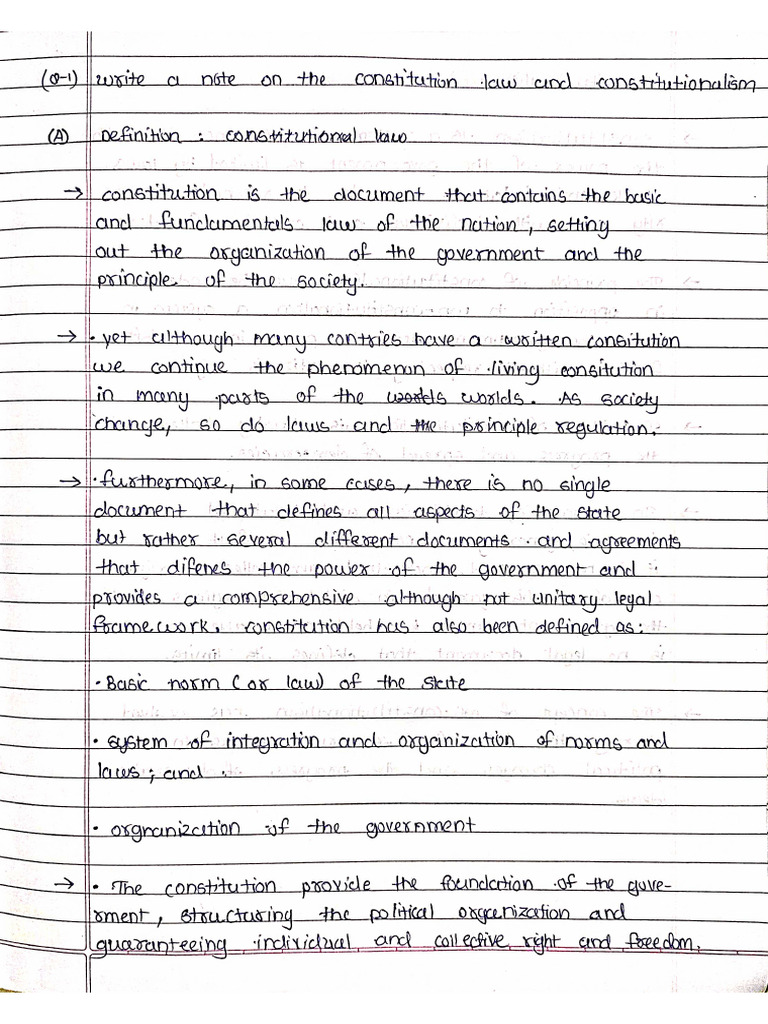 (Q-1) write a note on the constitution law and constitutionalism
(A) Definition : constitutional law
→ constitution is the document that contains the basic
and fundamentals law of the nation, setting
out the organization of the government and the
principle of the society.
→ • yet although many contries have a written consitution
we continue the phenomenon of living consitution
in many parts of the worlds worlds. As society
change, so do laws and the principle regulation.
→ • furthermore, in some cases, there is no single
document that defines all aspects of the state
but rather several different documents and agreements
that difenes the power of the government and
provides a comprehensive although not unitary legal
framework. constitution has also been defined as:
• Basic norm (or law) of the state
• system of integration and organization of norms and
laws; and
• orgnanization of the government
→ • The constitution provide the foundation of the gove-
rment, structuring the political organization and
guaranteeing individual and collective right and freedom.